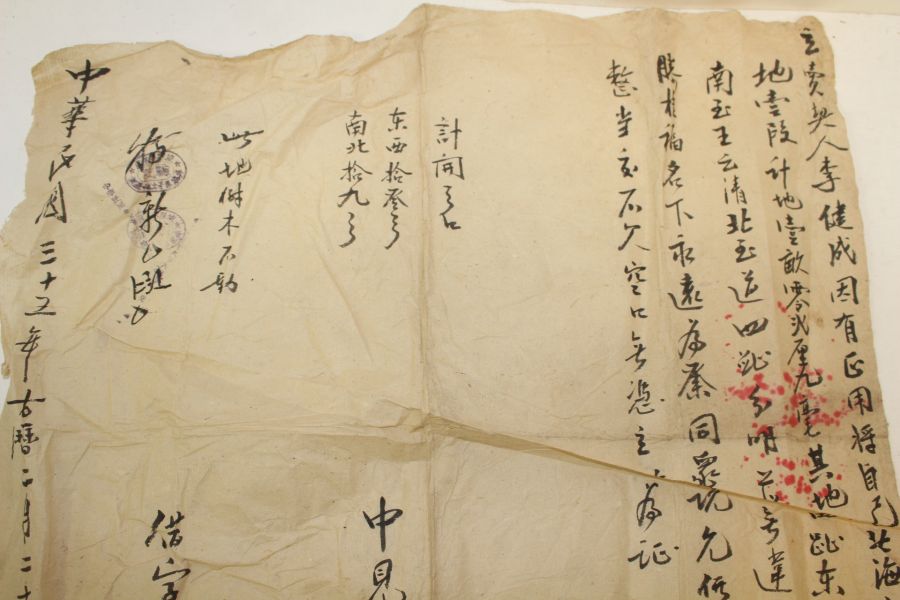 立賣契人李健成因有正用將自己北海
地壹段計地壹畝零弍厘九毫其地四趾東
南至王云清北至道四趾分明並無違
勝于福名下永遠為業同眾說允價
整当交不欠空口無憑立為証
計開弓口
东西拾叁弓
南北拾九弓
此地樹木不動
中見
借字
中華民国三十五年古曆二月二十